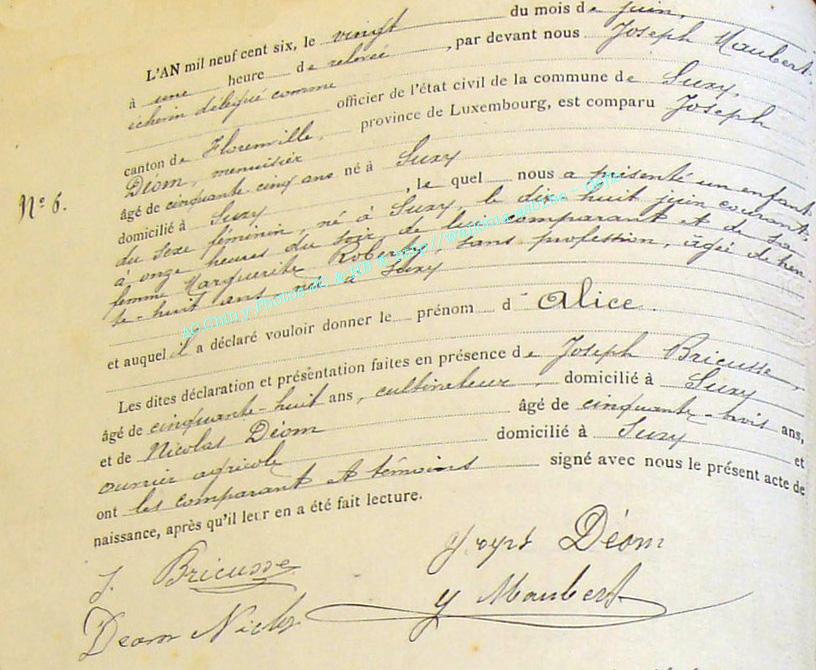 L'AN mil neuf cent six, le vingt du mois de juin,
à une heure de relevée, par devant nous Joseph Maubert
échevin délégué comme officier de l'état civil de la commune de Suxy,
canton de Florenville, province de Luxembourg, est comparu Joseph
Déom, menuisier
âgé de cinquante cinq ans né à Suxy
N° 6.
domicilié à Suxy, le quel nous a présenté un enfant
du sexe féminin, né à Suxy, le dix huit juin courant,
à onze heures du soir, de lui comparant et de sa
femme Marguerite Robert, sans profession, âgée de tren-
te-huit ans née à Suxy
et auquel il a déclaré vouloir donner le prénom d Alice.
Les dites déclaration et présentation faites en présence de Joseph Bricusse,
âgé de cinquante-huit ans, cultivateur, domicilié à Suxy
et de Nicolas Déom âgé de cinquante-trois ans,
ouvrier agricole domicilié à Suxy et
ont les comparant et témoins signé avec nous le présent acte de
naissance, après qu'il leur en a été fait lecture.
J. Bricusse Joseph Déom
Deom Nicls J Maubert